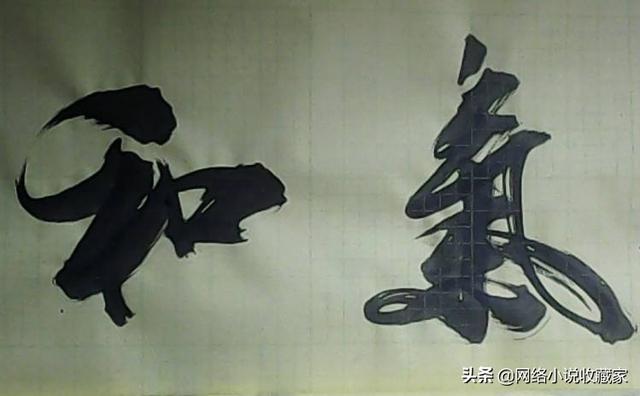 和氣
头条 @网络小说收藏家